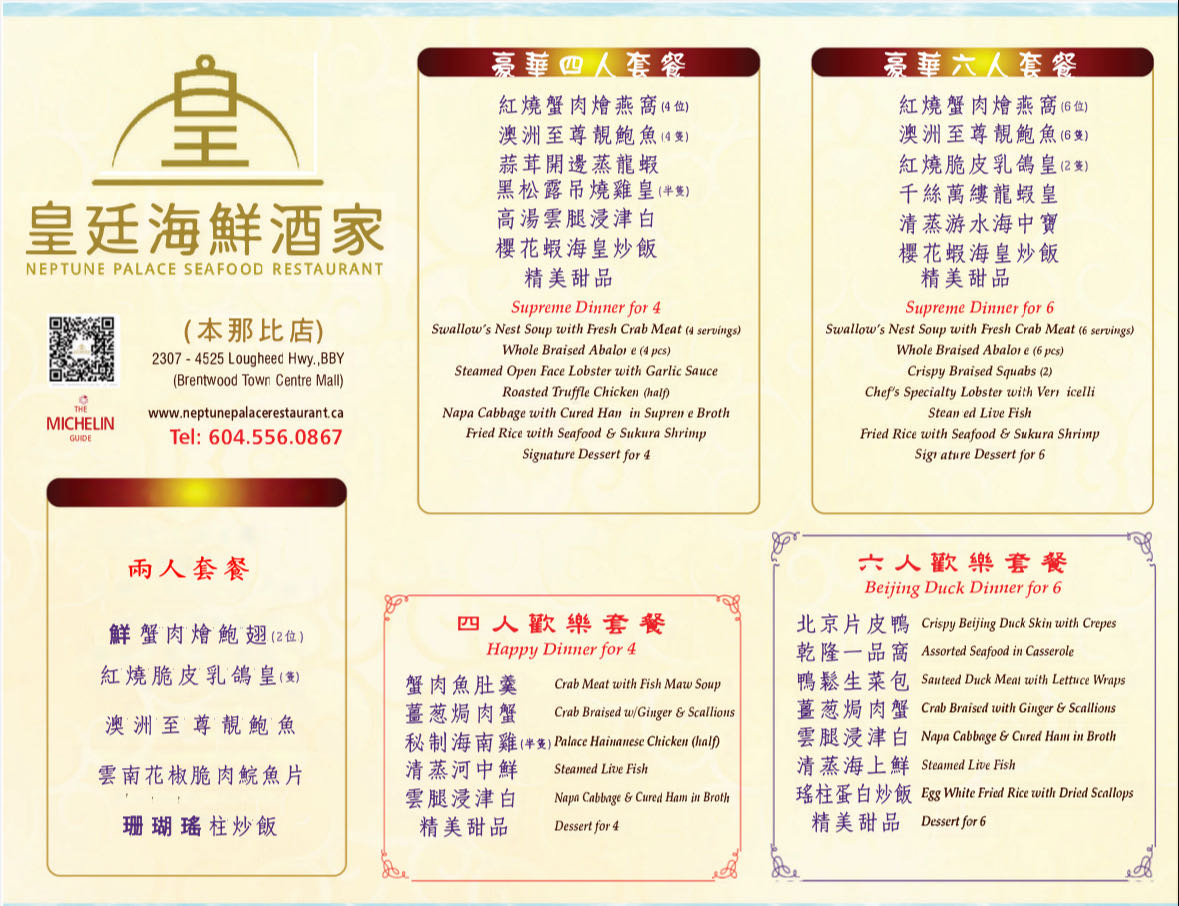 皇
皇廷海鮮酒家
NEPTUNE PALACE SEAFOOD RESTAURANT
(本那比店)
2307 - 4525 Lougheed Hwy.,BBY
(Brentwood Town Centre Mall)
THE
MICHELIN
GUIDE
www.neptunepalacerestaurant.ca
Tel: 604.556.0867
豪華四人套餐
紅燒蟹肉燴燕窩(4位)
澳洲至尊靚鮑魚(4隻)
蒜茸開邊蒸龍蝦
黑松露吊燒雞皇(半隻)
高湯雲腿浸津白
櫻花蝦海皇炒飯
精美甜品
Supreme Dinner for 4
Swallow's Nest Soup with Fresh Crab Meat (4 servings)
Whole Braised Abalor e (4 pcs)
Steamed Open Face Lobster with Garlic Sauce
Roasted Truffle Chicken (half)
Napa Cabbage with Cured Han in Supren e Broth
Fried Rice with Seafood & Sukura Shrimp
Signature Dessert for 4
豪華六人套餐
紅燒蟹肉燴燕窩(6位)
澳洲至尊靚鮑魚(6隻)
紅燒脆皮乳鴿皇(2隻)
千絲萬縷龍蝦皇
清蒸游水海中寶
櫻花蝦海皇炒飯
精美甜品
Supreme Dinner for 6
Swallow's Nest Soup with Fresh Crab Meat (6 servings)
Whole Braised Abalor e (6 pcs)
Crispy Braised Squabs (2)
Chef's Specialty Lobster with Vern icelli
Stean ed Live Fish
Fried Rice with Seafood & Sukura Shrimp
Sigr ature Dessert for 6
兩人套餐
鮮蟹肉燴鮑翅(2位)
紅燒脆皮乳鴿皇(隻)
澳洲至尊靚鮑魚
雲南花椒脆肉鯇魚片
珊瑚瑤柱炒飯
四人歡樂套餐
Happy Dinner for 4
蟹肉魚肚羹 Crab Meat with Fish Maw Soup
薑葱焗肉蟹 Crab Braised w/Ginger & Scallions
秘制海南雞(半隻) Palace Hainanese Chicken (half)
清蒸河中鮮 Steamed Live Fish
雲腿浸津白 Napa Cabbage & Cured Ham in Broth
精美甜品 Dessert for 4
六人歡樂套餐
Beijing Duck Dinner for 6
北京片皮鴨 Crispy Beijing Duck Skin with Crepes
乾隆一品窩 Assorted Seafood in Casserole
鴨鬆生菜包 Sauteed Duck Meat with Lettuce Wraps
薑葱焗肉蟹 Crab Braised with Ginger & Scallions
雲腿浸津白 Napa Cabbage & Cured Ham in Broth
清蒸海上鮮 Steamed Live Fish
瑤柱蛋白炒飯 Egg White Fried Rice with Dried Scallops
精美甜品 Dessert for 6